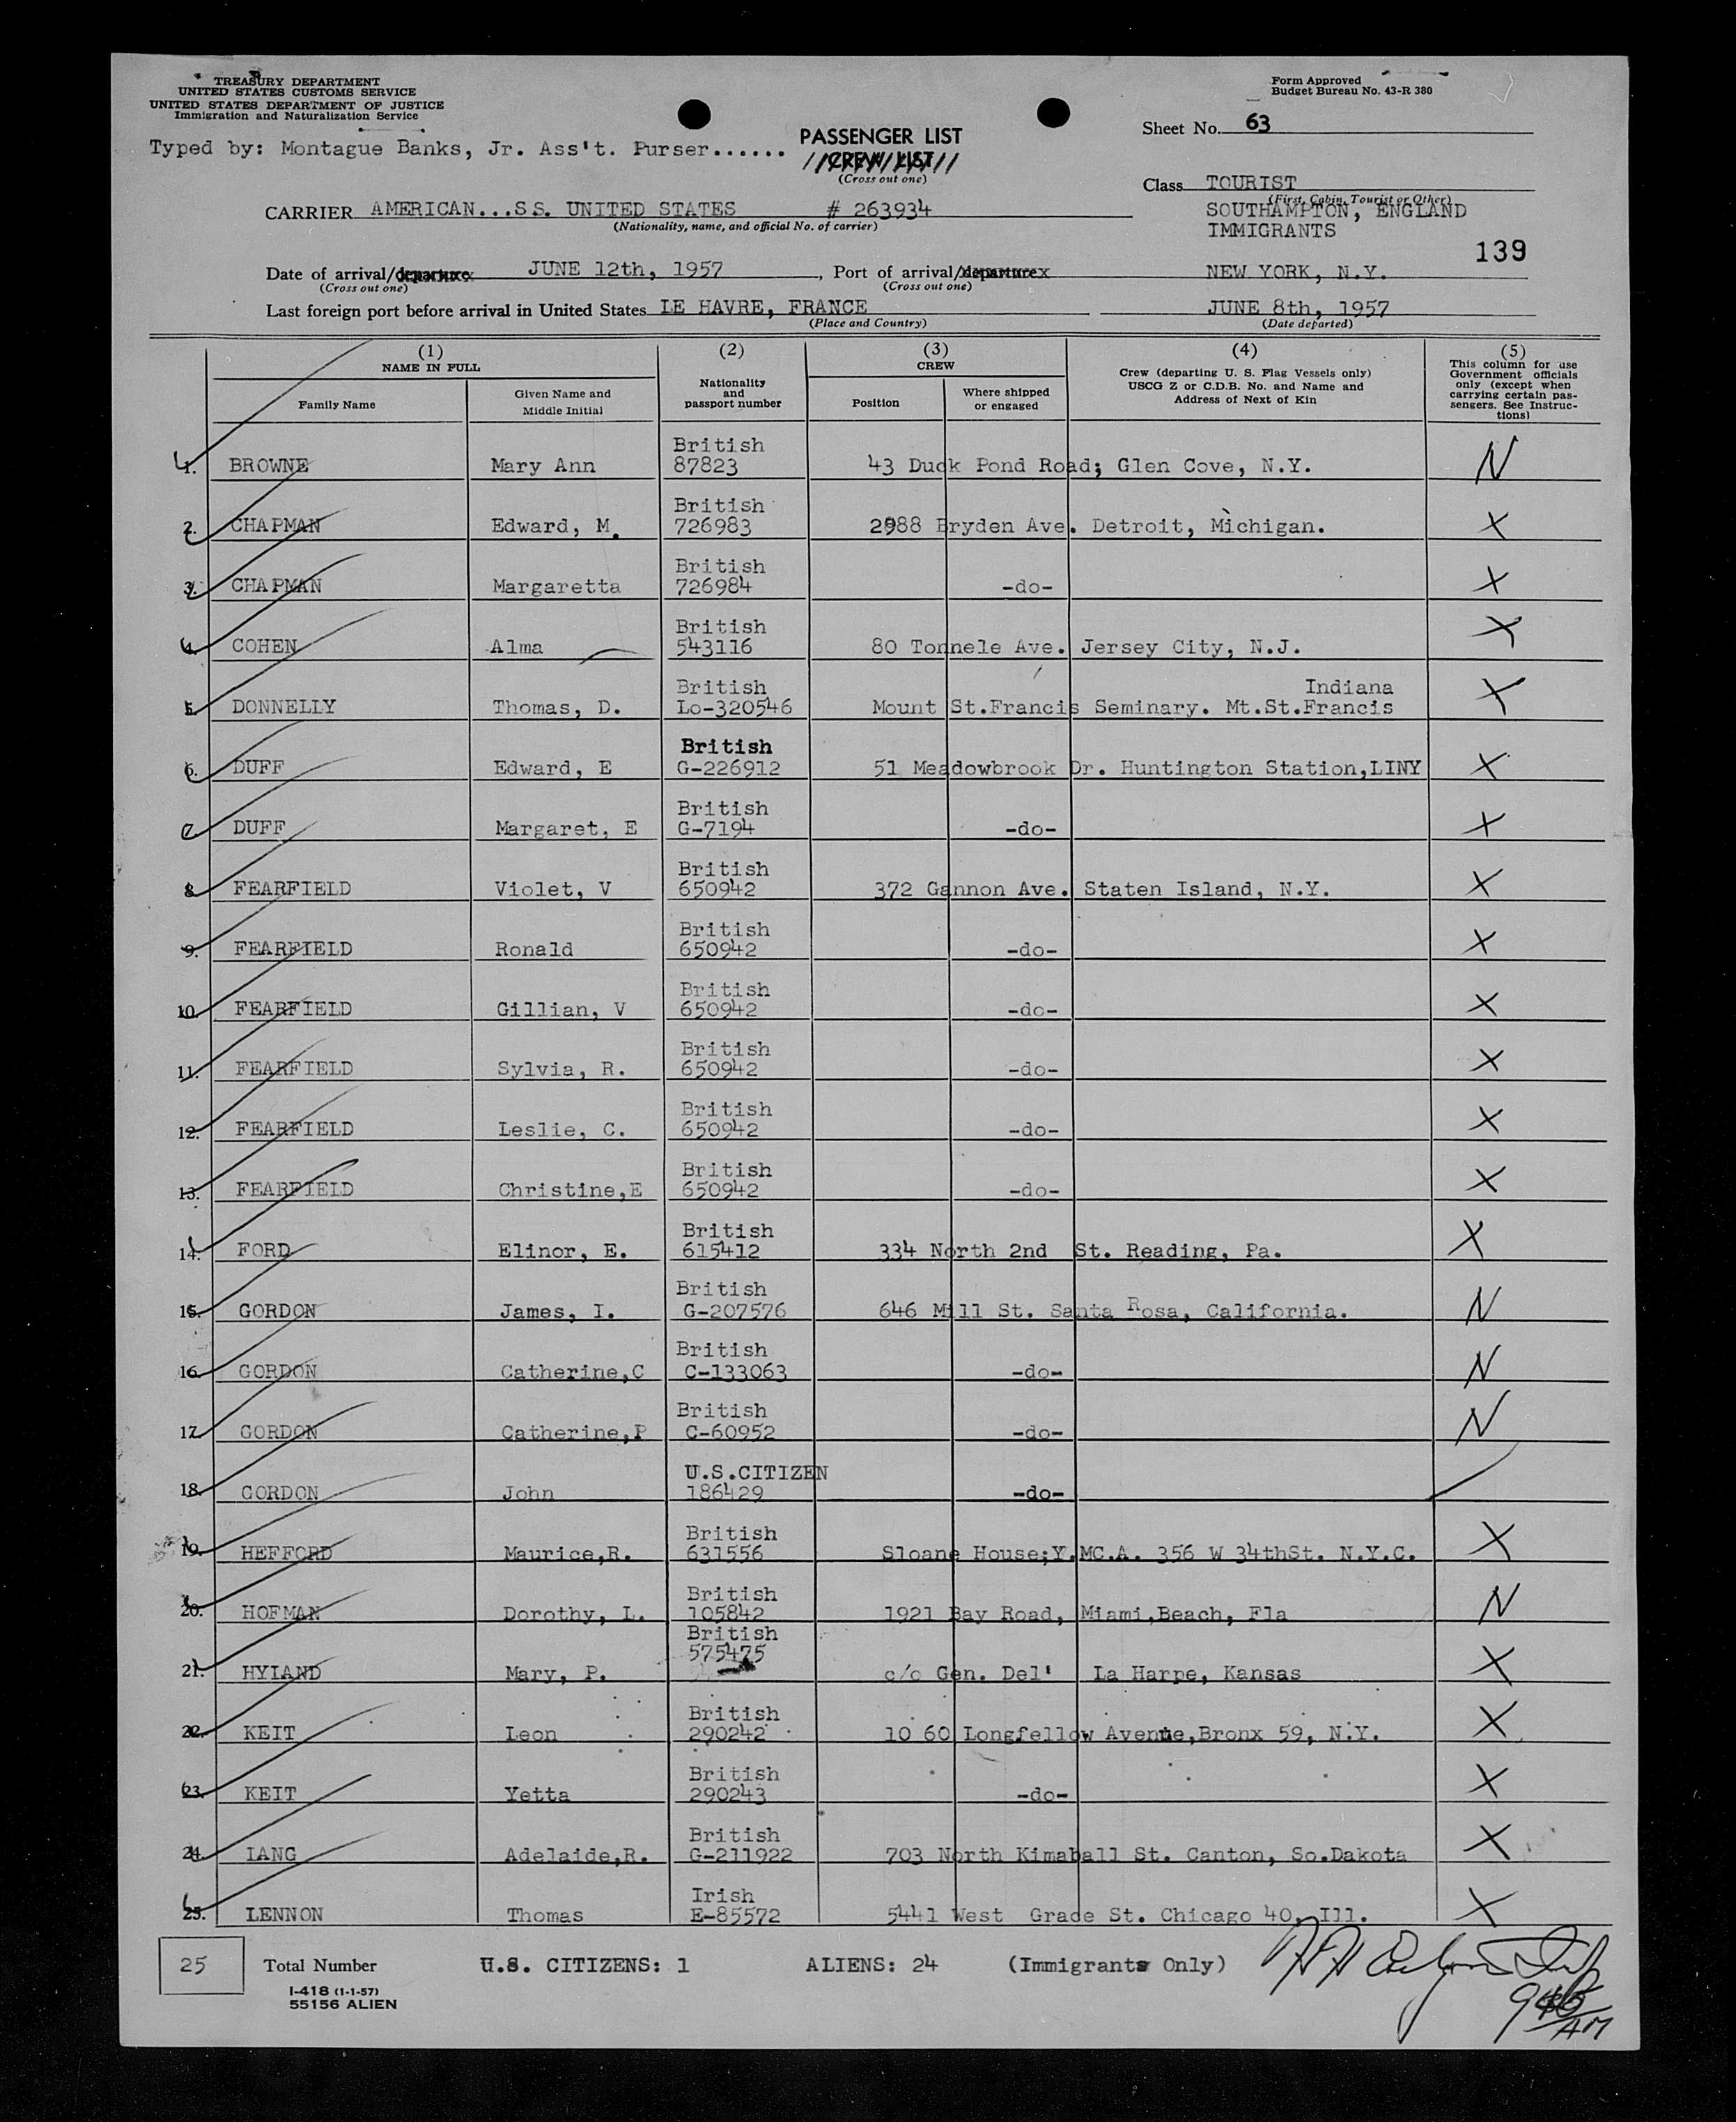 TREASURY DEPARTMENT
UNITED STATES CUSTOMS SERVICE
UNITED STATES DEPARTMENT OF JUSTICE
Immigration and Naturalization Service
Form Approved
Budget Bureau No. 43-R 380
Sheet No. 63
Typed by: Montague Banks, Jr. Ass't. Purser......
PASSENGER LIST
CREW LIST
(Cross out one)
Class TOURIST
(First, Cabin, Tourist or Other)
CARRIER AMERICAN...SS. UNITED STATES # 263934
(Nationality, name, and official No. of carrier)
SOUTHAMPTON, ENGLAND
IMMIGRANTS
139
Date of arrival/departure JUNE 12th, 1957, Port of arrival/departure NEW YORK, N.Y.
(Cross out one) (Cross out one)
Last foreign port before arrival in United States LE HAVRE, FRANCE JUNE 8th, 1957
(Place and Country) (Date departed)
(1) (2) (3) (4) (5)
NAME IN FULL
Family Name
Given Name and Middle Initial
Nationality and passport number
CREW
Position
Where shipped or engaged
Crew (departing U. S. Flag Vessels only)
USCG Z or C.D.B. No. and Name and
Address of Next of Kin
This column for use
Government officials
only (except when
carrying certain pas-
sengers. See Instruc-
tions)
British
1. BROWNE Mary Ann 87823 43 Duck Pond Road; Glen Cove, N.Y. N
British
2. CHAPMAN Edward, M. 726983 2988 Bryden Ave. Detroit, Michigan. X
British
3. CHAPMAN Margaretta 726984 -do- X
British
4. COHEN Alma 543116 80 Tonnele Ave. Jersey City, N.J. X
British Indiana
5. DONNELLY Thomas, D. Lo-320546 Mount St.Francis Seminary. Mt.St.Francis X
British
6. DUFF Edward, E G-226912 51 Meadowbrook Dr. Huntington Station,LINY X
British
7. DUFF Margaret, E G-7194 -do- X
British
8. FEARFIELD Violet, V 650942 372 Gannon Ave. Staten Island, N.Y. X
British
9. FEARFIELD Ronald 650942 -do- X
British
10. FEARFIELD Gillian, V 650942 -do- X
British
11. FEARFIELD Sylvia, R. 650942 -do- X
British
12. FEARFIELD Leslie, C. 650942 -do- X
British
13. FEARFIELD Christine,E 650942 -do- X
British
14. FORD Elinor, E. 615412 334 North 2nd St. Reading, Pa. X
British
15. GORDON James, I. G-207576 646 Mill St. Santa Rosa, California. N
British
16. GORDON Catherine,C C-133063 -do- N
British
17. GORDON Catherine,P C-60952 -do- N
U.S.CITIZEN
18. GORDON John 186429 -do-
British
19. HEFFORD Maurice,R. 631556 Sloane House;Y.MC.A. 356 W 34thSt. N.Y.C. X
British
20. HOFMAN Dorothy, L. 105842 1921 Bay Road, Miami,Beach, Fla N
British
575475
21. HYLAND Mary, P. c/o Gen. Del' La Harpe, Kansas X
British
22. KEIT Leon 290242 10 60 Longfellow Avenue,Bronx 59, N.Y. X
British
23. KEIT Yetta 290243 -do- X
British
24. LANG Adelaide,R. G-211922 703 North Kimaball St. Canton, So.Dakota X
Irish
25. LENNON Thomas E-85572 5441 West Grade St. Chicago 40, Ill. X
25 Total Number U.S. CITIZENS: 1 ALIENS: 24 (Immigrants Only)
I-418 (1-1-57)
55156 ALIEN
AM